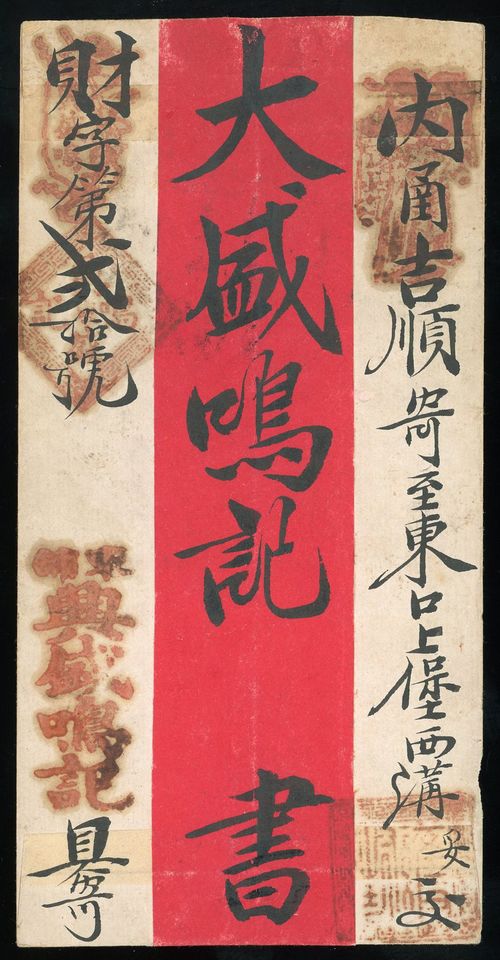 内甬吉順寄至東口上堡西溝妥交
大盛鳴記 書
財字第貳拾號
興盛鳴記
具寄